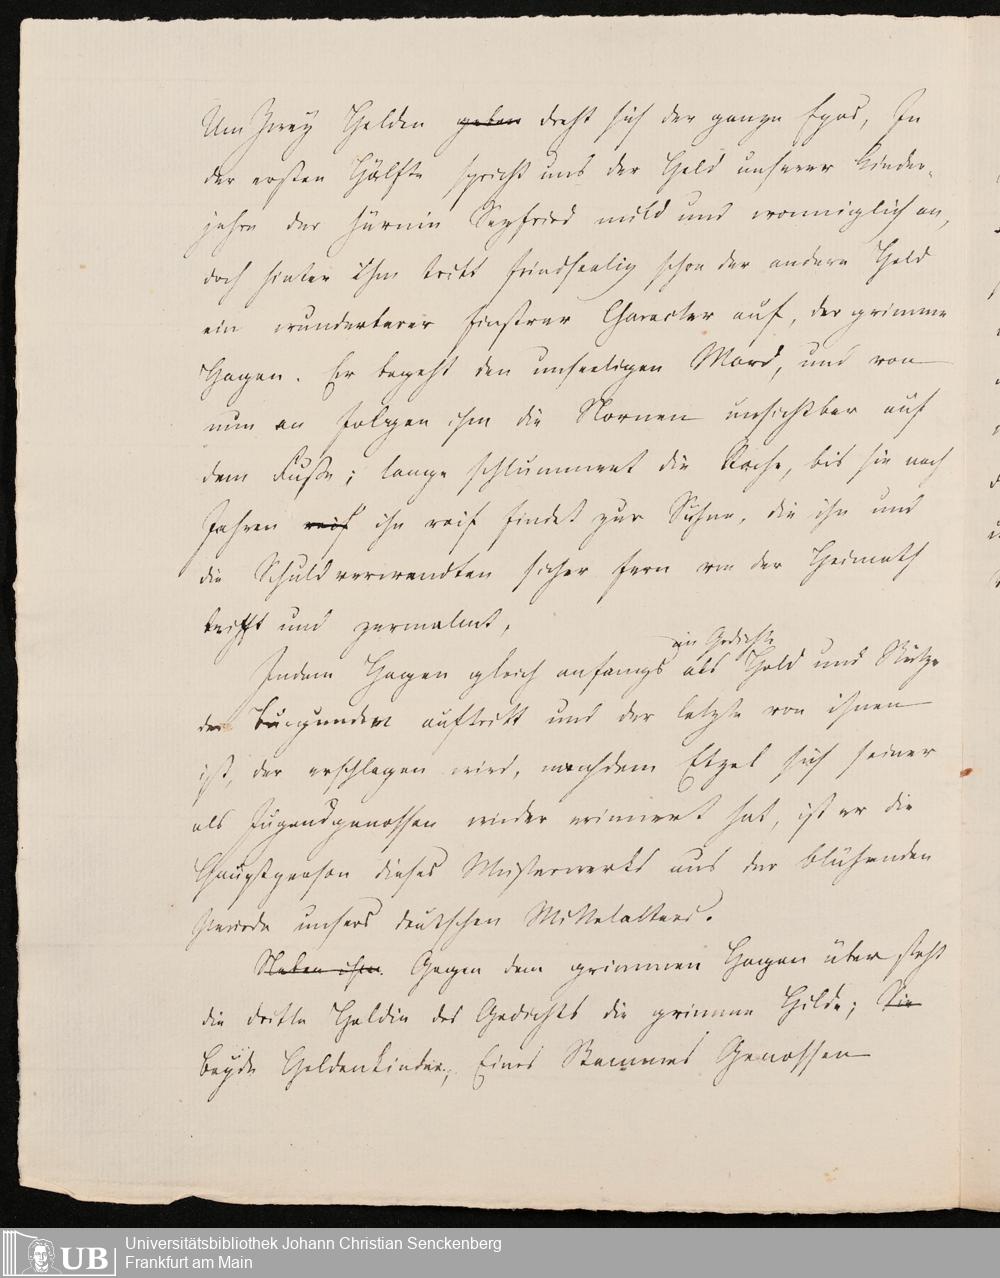 Um Zwey Helden geben dreht sich der ganze Epos, In
der ersten Hälfte spricht uns der Held unserer Kinder-
jahre der hürnin Seyfried mild und wonniglich an,
doch hinter ihm tritt feindseelig schon der andere Held
ein wunderbarer finstrer Character auf, der grimme
Hagen. Er begeht den unseeligen Mord, und von
nun an folgen ihm die Nornen unsichtbar auf
dem Fuße; lange schlummert die Rache, bis sie nach
Jahren reif ihn reif findet zur Sühne, die ihn und
die Schuldverwandten sicher fern von der Heimath
trifft und zermalmt,
im Gedichte
Indem Hagen gleich anfangs als Held und Stütze
der Burgunden auftritt und der letzte von ihnen
ist, der erschlagen wird, nachdem Etzel sich seiner
als Jugendgenossen wieder erinnert hat, ist er die
Hauptperson dieses Meisterwerks aus der blühenden
Periode unsers deutschen Mittelalters.
Neben ihm. Gegen dem grimmen Hagen über steht
die dritte Heldin des Gedichts die grimme Hilde; Sie
beyde Heldenkinder, Eines Stammes Genossen
Universitätsbibliothek Johann Christian Senckenberg
UB Frankfurt am Main